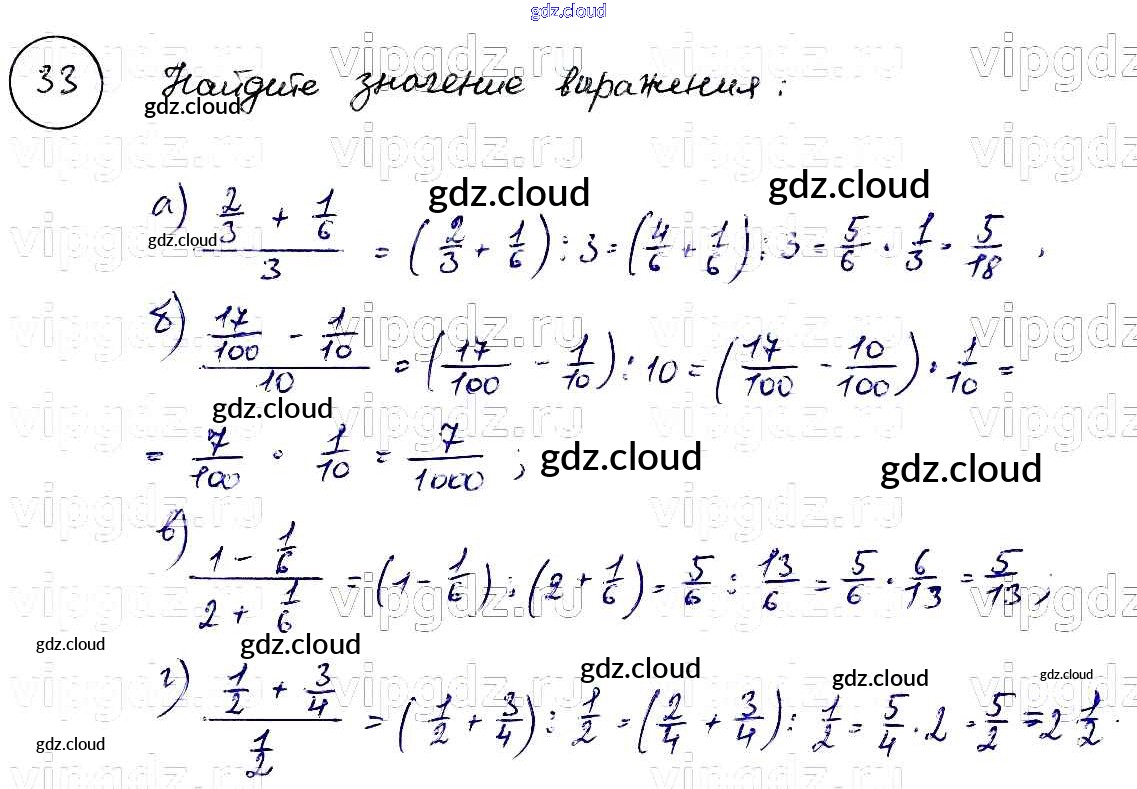 gdz.cloud
33 Найдите значение выражения:
gdz.cloud
а) (2/3 + 1/6)/3 = (2/3 + 1/6) : 3 = (4/6 + 1/6) : 3 = 5/6 · 1/3 = 5/18 ,
gdz.cloud gdz.cloud gdz.cloud
б) (17/100 - 1/10)/10 = (17/100 - 1/10) : 10 = (17/100 - 10/100) · 1/10 =
gdz.cloud
= 7/100 · 1/10 = 7/1000 ;
gdz.cloud gdz.cloud
в) (1 - 1/6)/(2 + 1/6) = (1 - 1/6) : (2 + 1/6) = 5/6 : 13/6 = 5/6 · 6/13 = 5/13 ;
gdz.cloud gdz.cloud gdz.cloud gdz.cloud gdz.cloud
г) (1/2 + 3/4)/(1/2) = (1/2 + 3/4) : 1/2 = (2/4 + 3/4) : 1/2 = 5/4 · 2 = 5/2 = 2 1/2 .
gdz.cloud
vipgdz.ru